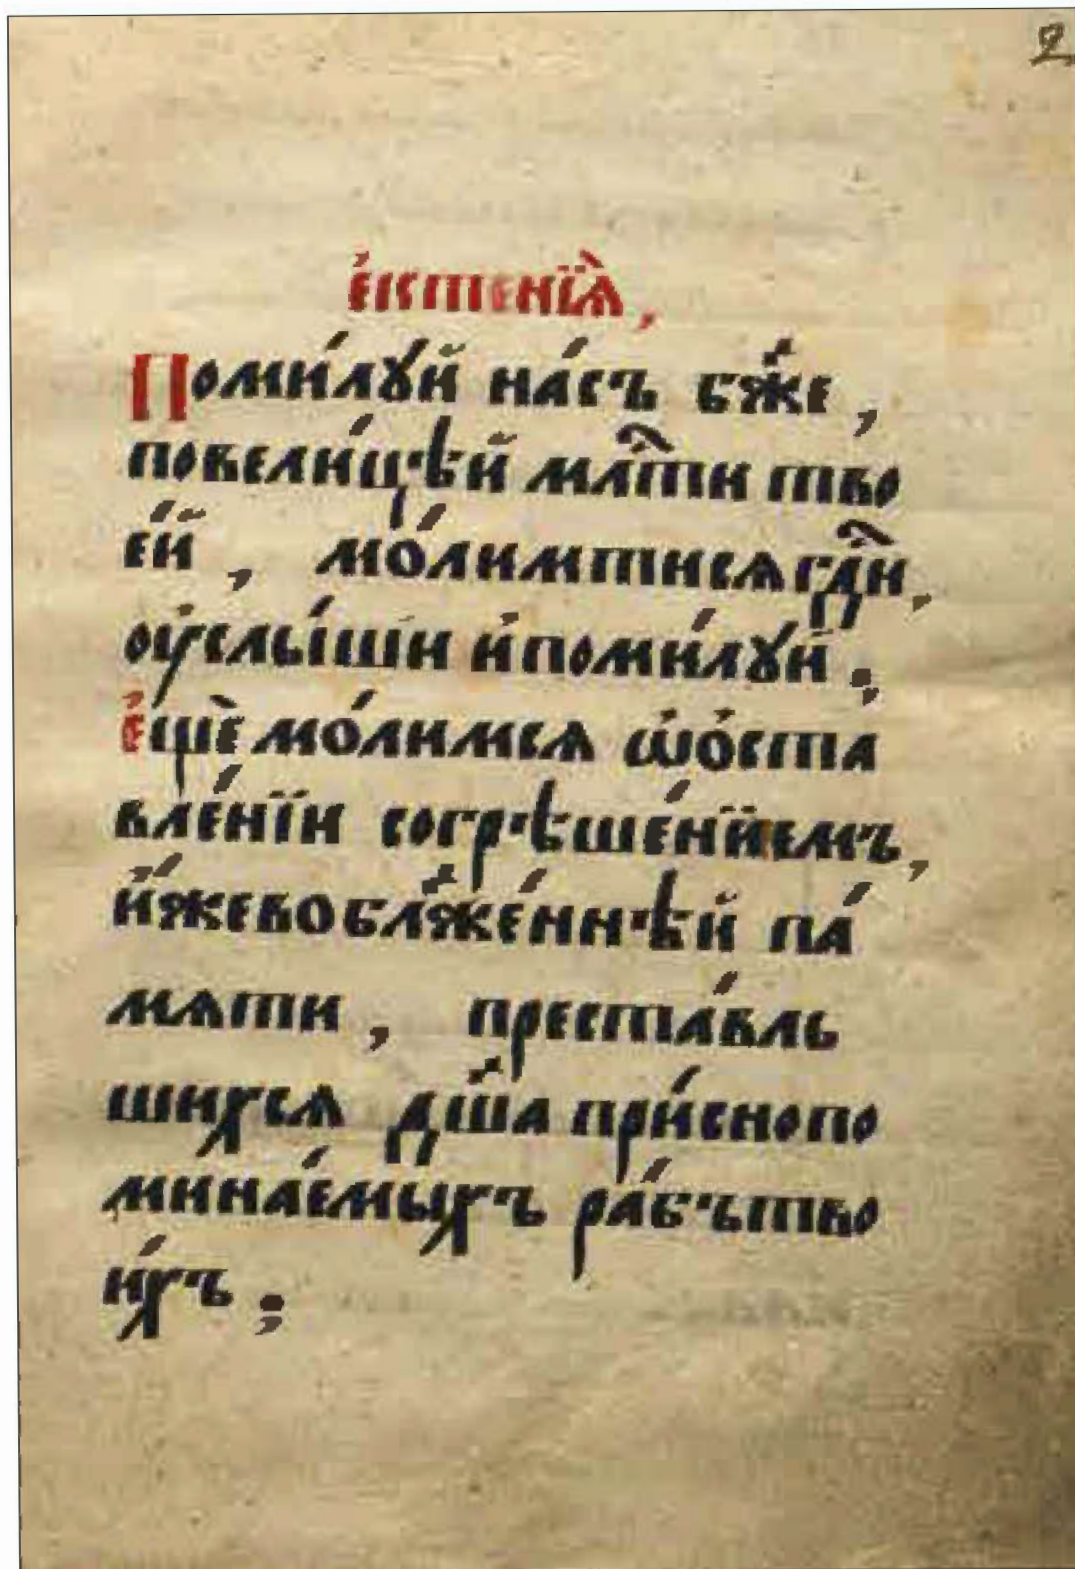 2
е҆ктенїѧ̀,
Поми́лꙋй на́съ бж҃е,
повели́цѣй млⷭ҇ти тво
е́й, мо́лимтисѧ гдⷭ҇и,
оу҆слы́ши и҆поми́лꙋй;
є҆щѐ мо́лимсѧ ѡ҆о҆ста
вле́нїи согрѣше́нїемъ,
и҆́жевоблаже́ннѣй па́
мѧти, преста́вль
шихсѧ дш҃а при́снопо
мина́емыхъ ра́бътво
и́хъ;